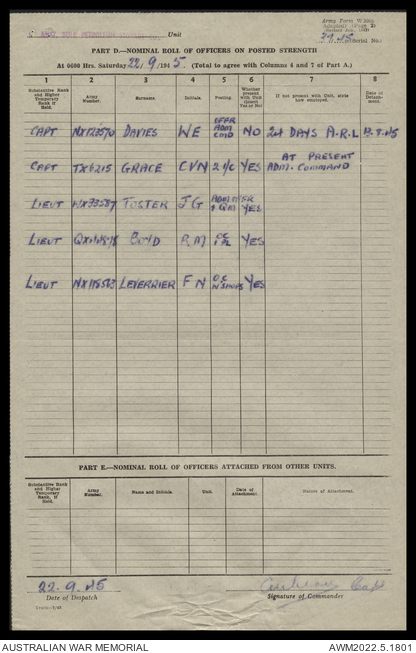 Army Form W.3008
Unit
22.9.45 (Serial No.)
PART D.—NOMINAL ROLL OF OFFICERS ON POSTED STRENGTH
At 0600 Hrs. Saturday 22/9/1945. (Total to agree with Columns 4 and 7 of Part A.)
1 2 3 4 5 6 7 8
Substantive Rank and Higher Temporary Rank if Held. Army Number. Surname. Initials. Posting. Whether present with Unit (Insert Yes or No) If not present with Unit, state how employed. Date of Detachment.
CAPT DAVIES WE OFFR ADM CMD NO 24 DAYS A.R.L
CAPT TX6215 GRACE CVN 2 i/c YES AT PRESENT ADM. COMMAND
LIEUT FOSTER JG YES
LIEUT BOYD RM OC YES
LIEUT LEVERRIER FN OC YES
PART E.—NOMINAL ROLL OF OFFICERS ATTACHED FROM OTHER UNITS.
Substantive Rank and Higher Temporary Rank, if Held. Army Number. Name and Initials. Unit. Date of Attachment. Nature of Attachment.
22.9.45 Capt
Date of Despatch Signature of Commander
AUSTRALIAN WAR MEMORIAL AWM2022.5.1801